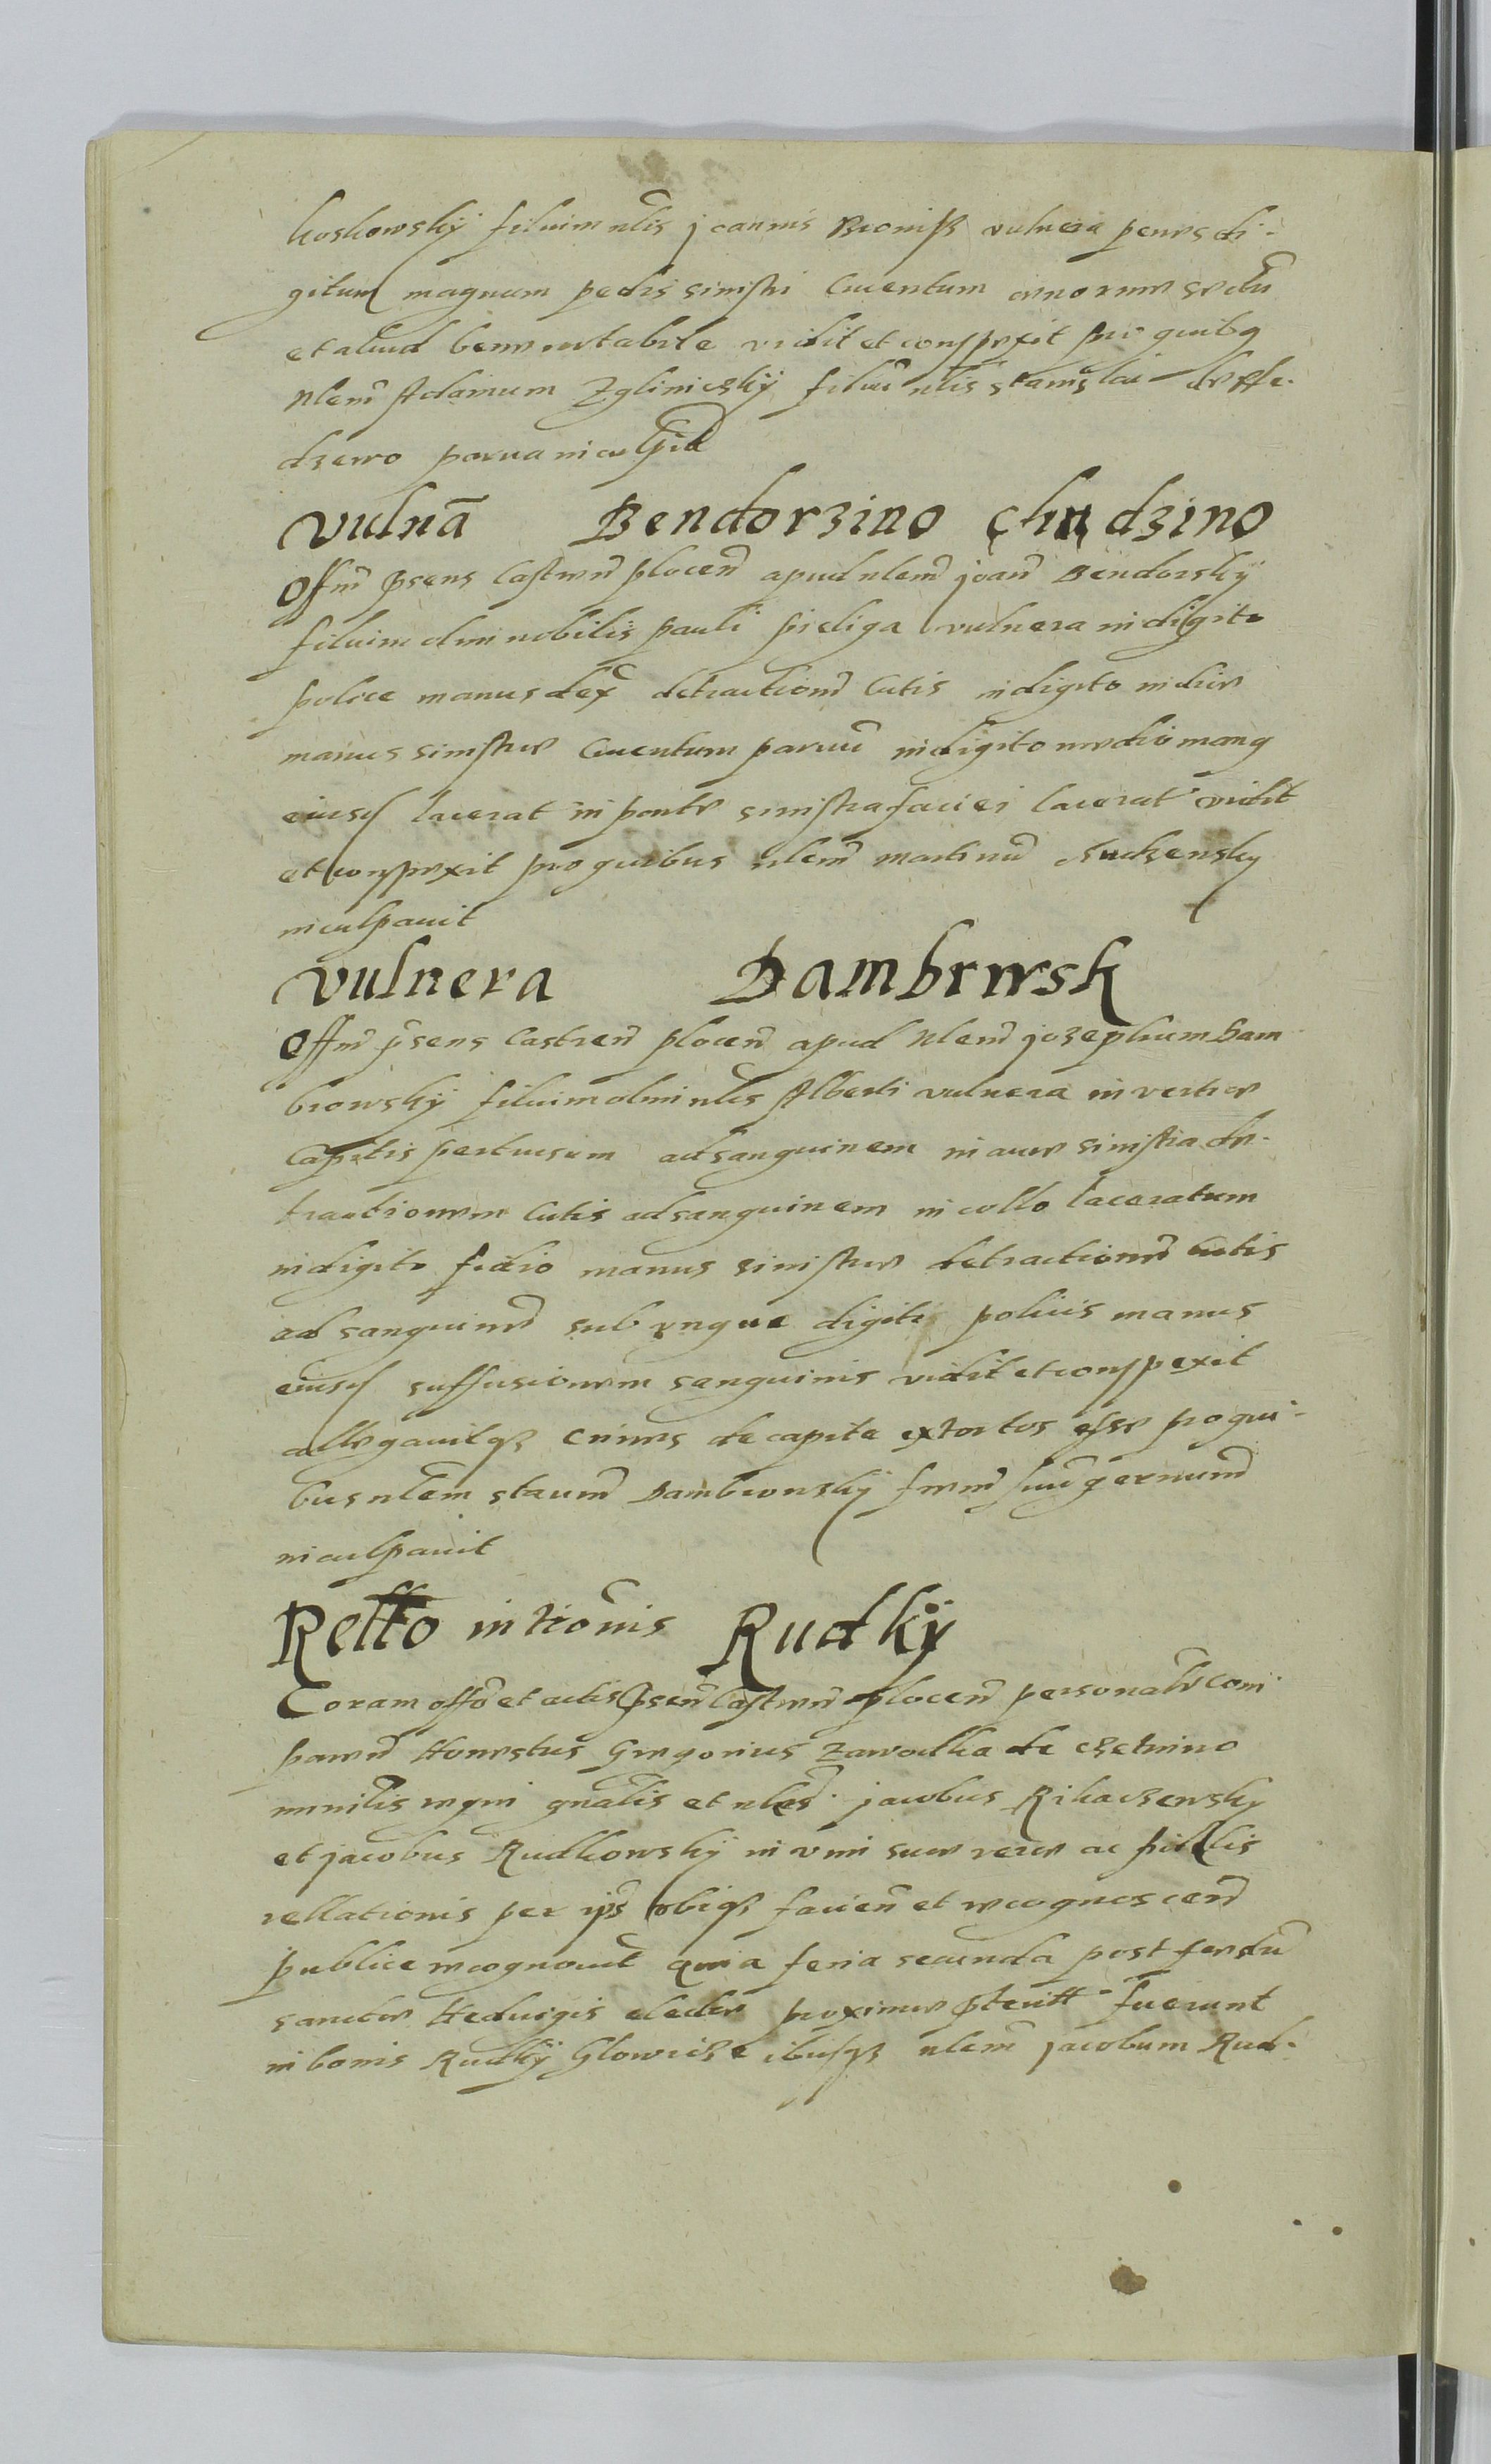 koskowskÿ filium nlis joannis Bronisz vulnera penes di-
gitum magnum pedis sinistri Cruentum
et aliud vidit et conspexit pro quibꝫ
Nlem Adamum Zglinicskÿ filiu nlis stanislai
inculpa
vulna Bendorzino chudzino
Offm psens Castren plocen apud nlem joan Bendorskÿ
filium olim nobilis pauli vulnera in digito
police manus dex detraction Cutis in digito indice
manus sinistre Cruentum paruu in digito medio manꝫ
eiusd lacerat in parte sinistra faciei lacerat vidit
et conspexit pro quibus nlem martinu chudzensky
inculpauit
vulnera Dambrowsk
Offm psens Castren plocen apud Nlem jozephum Dam
browskÿ filium olim nlis Alberti vulnera in vertice
Capitis pertusum ad sanguinem in aure sinistra de-
tractionem Cutis ad sanguinem in collo laceratum
in digito manus sinistre detractionem Cutis
ad sanguinem sub vngue digiti policis manus
eiusd suffusionem sanguinis vidit et conspexit
allegauitqꝫ crines de capite extortos esse pro qui-
bus nlem Dambrowskÿ frem suu germanum
inculpauit
Rello intromis Rudkÿ
Coram offo et actis psen Castren plocen personalr com
paren Honestus Gregorius Zawadka de
mnrlis regni gnalis et nles jacobus Rikaczewsky
et jacobus Rudkowskÿ in vim sue vere ac fidelis
rellationis per ips vbiqꝫ facien et recognoscen
publice recognouit quia feria secunda post festu
sancte Heduigis electe proxime pterit fuerunt
in bonis Rudkÿ Glowicze ibiqꝫ nlem jacobum Rud-